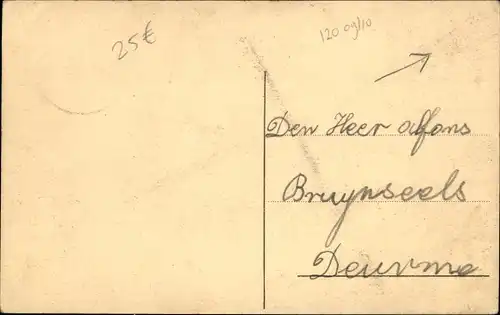 25€
120 09/10
Den Heer Alfons
Bruynseels
Deurne